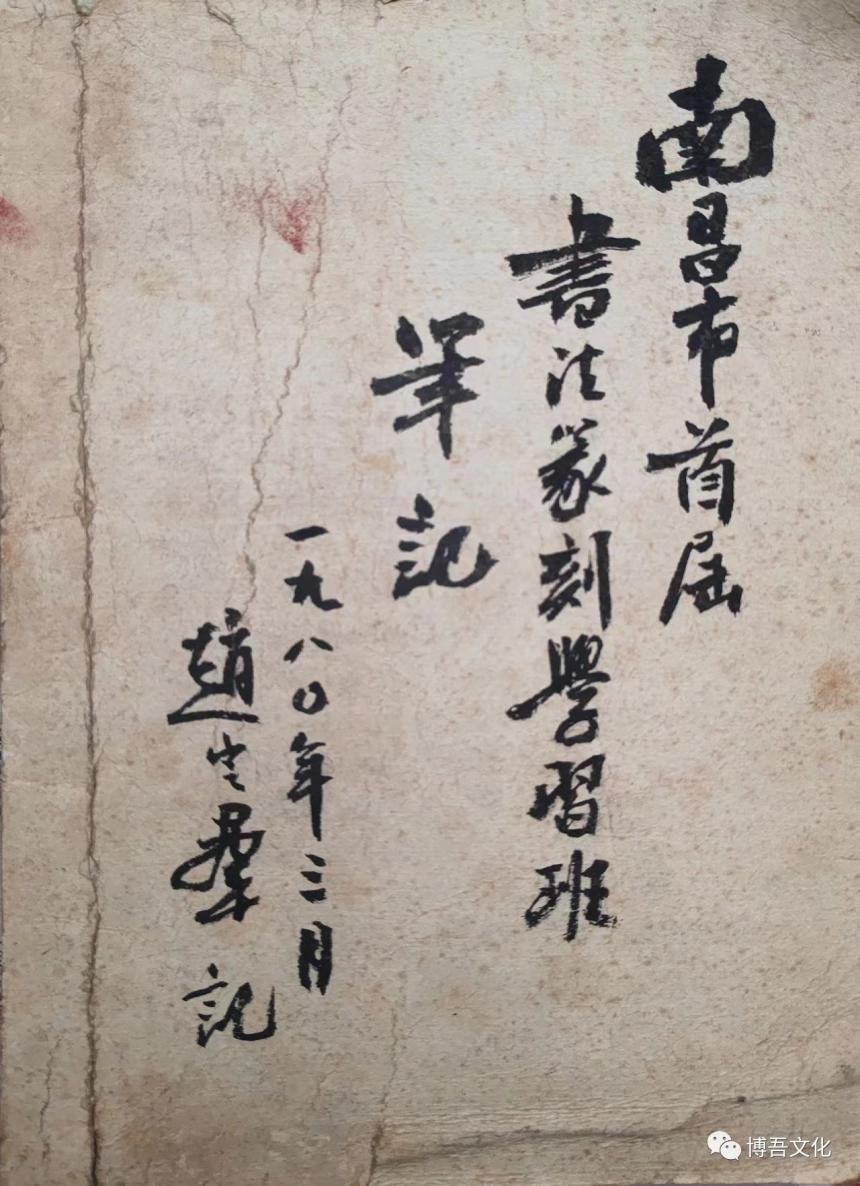 南昌市首屆
書法篆刻學習班
筆記
一九八〇年三月
趙定羣記
博吾文化